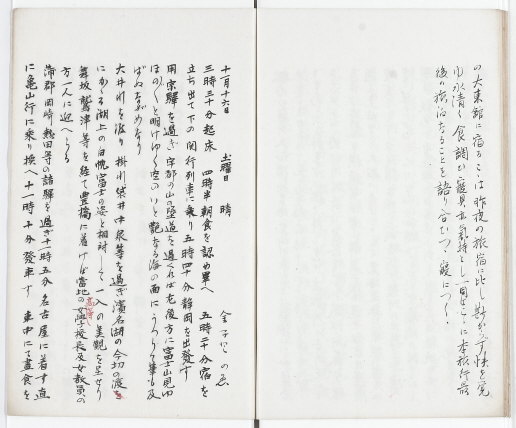 の大東館に宿る こは昨夜の旅宿に比し
水清く食調ひ寝具も気持よし一同こゝに本旅行最
後の旅泊なることを語り合ひつゝ寝につく。
十一月十六日 土曜日 晴
三時三十分起床 四時半朝食を認め畢へ 五時二十分宿を
立ち出て下の関行列車に乗り五時四十分静岡を出発す
用宗駅を過ぎ宇都の山の墜道を過ぐれば老後方に富士山見ゆ
ほのぼのと明けゆく空のいと艶なる海の面にうつりて筆も及
ばぬながめなり
大井川を渡り掛川袋井中泉等を過ぎ濱名湖の今切の渡を
にかゝる湖上の白帆富士の姿と相対して一入の美観を呈せり
舞坂鷲津等を経て豊橋に着けば当地の高等女学校長及女教員の
方一人に迎へらる
蒲郡岡崎熱田等の諸駅を過ぎ十一時五分名古屋に着す直
に亀山行に乗り換へ十一時十分発車す 車中にて昼食を